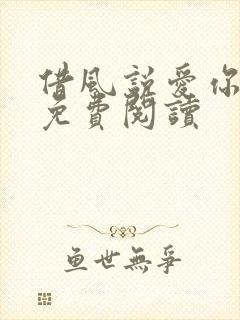 借風說愛你
免費閱讀
魚世無爭